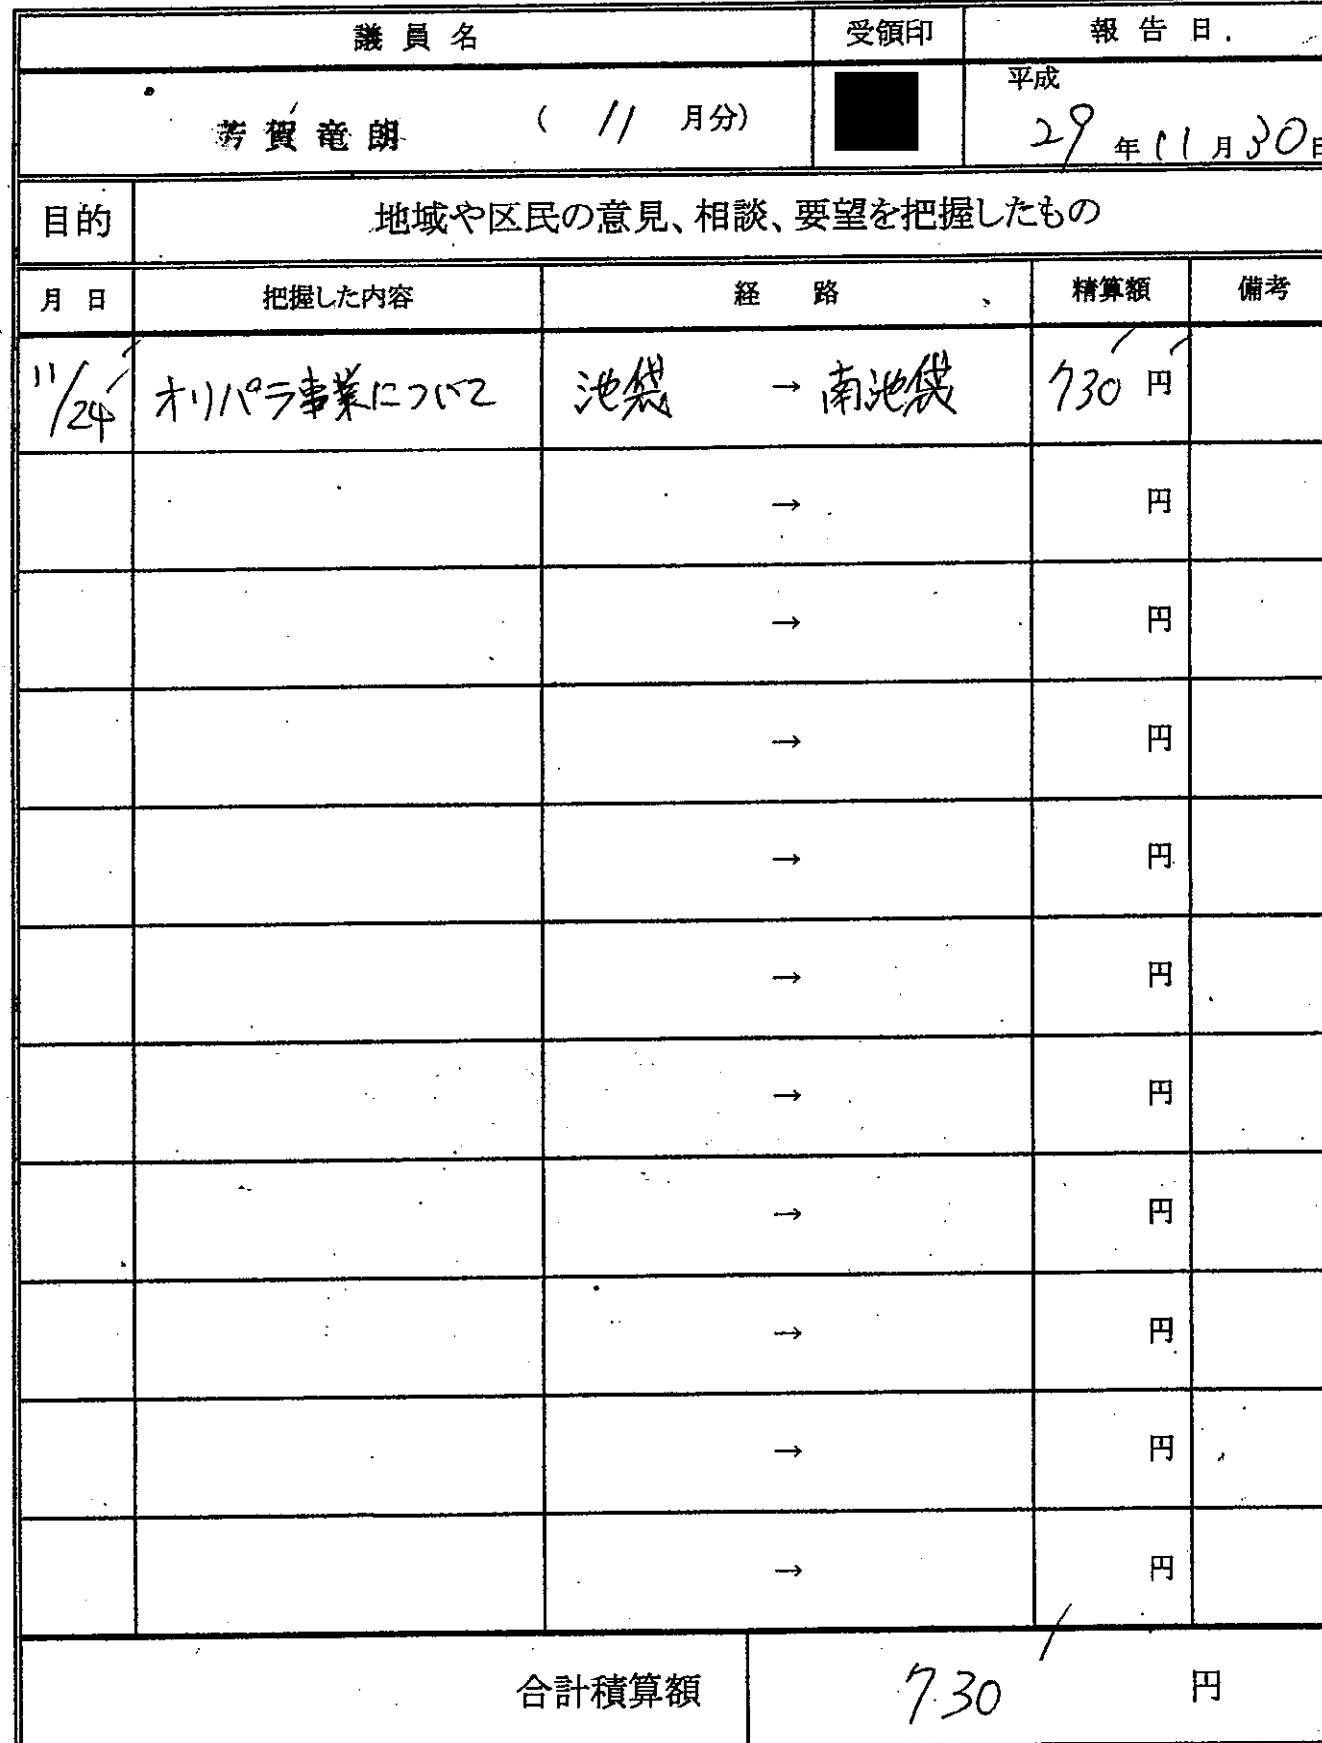 議員名 受領印 報告日
芳賀竜朗 ( 11 月分) 平成 29 年 11 月 30 日
目的 地域や区民の意見、相談、要望を把握したもの
月日 把握した内容 経路 精算額 備考
11/24 オリパラ事業について 池袋 → 南池袋 730 円
→ 円
→ 円
→ 円
→ 円
→ 円
→ 円
→ 円
→ 円
→ 円
→ 円
合計積算額 730 円